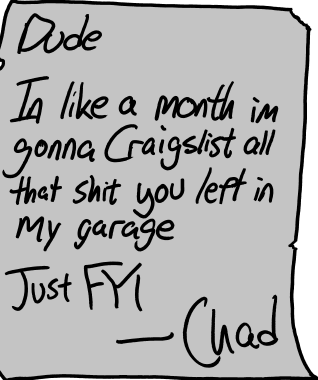 Dude
In like a month im
gonna Craigslist all
that shit you left in
my garage
Just FYI
— Chad